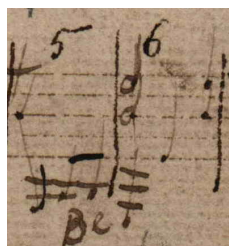 5 6
Be